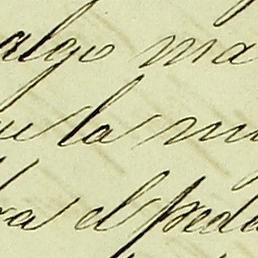 algo ma
ue la mu
ra el peda